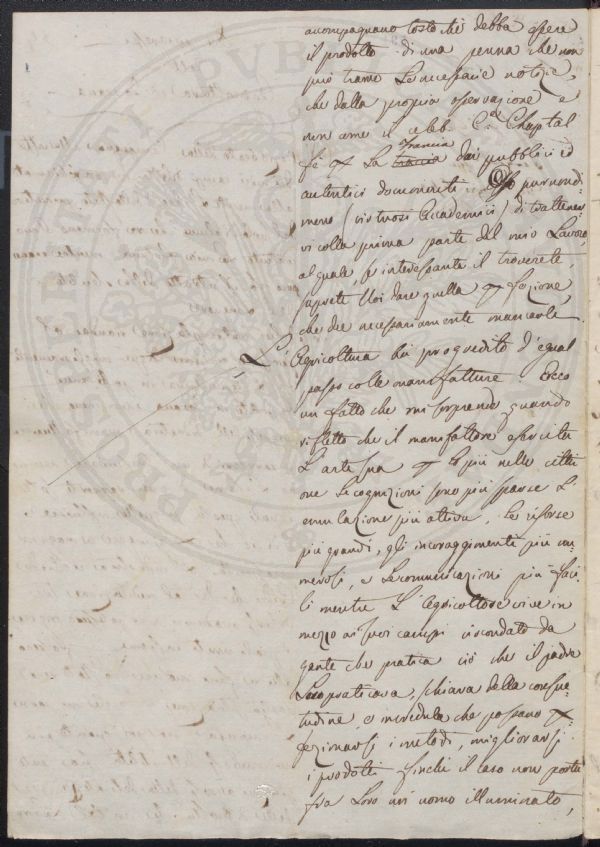 accompagnano tosto chè debba essere
il prodotto di una penna che non
può trarre le necessarie notizie,
che dalla propria osservazione e
non come il celeb. Chaptal
fè La Francia dai pubblici ed
autentici documenti parmendi
meno (virtuosi Accademici) di trattener
vi colla prima parte del mio Lavoro,
al quale, se interessante il troverete,
saprete Voi dare quella pfezione,
che dee necessariamente mancarle
L'Agricoltura hà progredito d'egual
passo colle manifatture. Ecco
un fatto che mi sorprende quando
rifletto che il manifattore esercita
L'arte sua p lo più nelle citta
one le cognizioni sono più sparse L
emulazione più attiva, le risorse
più grandi, gli incoraggimenti più nu
merosi, e le communicazioni più faci
li mentre L'Agricoltore vive in
mezzo ai suoi campi circondato da
gente che pratica ciò che il padre
Suo praticava, schiava della consue
tudine, e incredula che possano p
fezionarsi i metodi, migliorarsi
i prodotti finchè il caso non porti
fra Loro un uomo illuminato,
PROSPERITATI PVBL